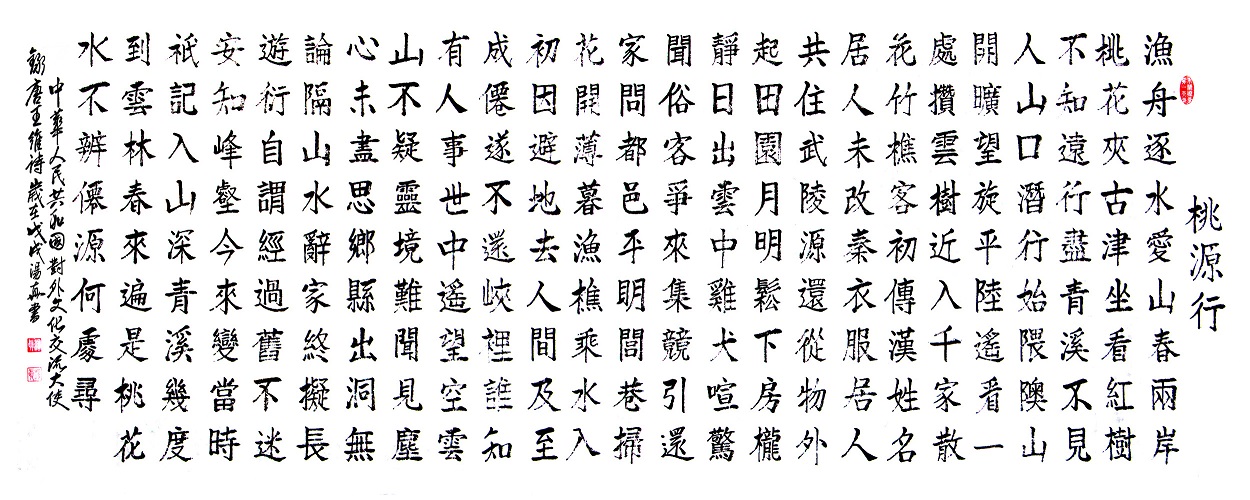 桃源行
漁舟逐水愛山春兩岸
桃花夾古津坐看紅樹
不知遠行盡青溪不見
人山口潛行始隈隩山
開曠望旋平陸遙看一
處攢雲樹近入千家散
花竹樵客初傳漢姓名
居人未改秦衣服居人
共住武陵源還從物外
起田園月明鬆下房櫳
靜日出雲中雞犬喧驚
聞俗客爭來集競引還
家問都邑平明閭巷掃
花開薄暮漁樵乘水入
初因避地去人間及至
成僊遂不還峽裡誰知
有人事世中遙望空雲
山不疑靈境難聞見塵
心未盡思鄉縣出洞無
論隔山水辭家終擬長
遊衍自謂經過舊不迷
安知峰壑今來變當時
祇記入山深青溪幾度
到雲林春來遍是桃花
水不辨僊源何處尋
中華人民共和國對外文化交流大使
錄唐王維詩歲在戊戌湯書